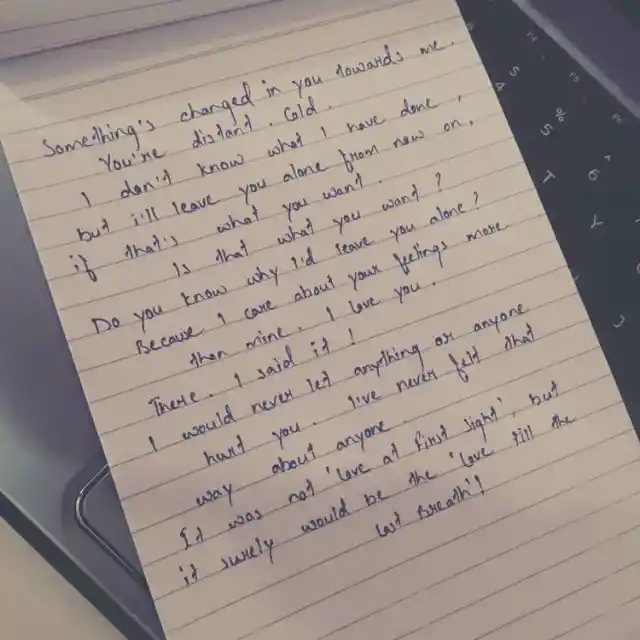 Something's changed in you towards me.
You're distant. Cold.
I don't know what I have done,
but i'll leave you alone from now on,
if that's what you want.
Is that what you want?
Do you know why i'd leave you alone?
Because I care about your feelings more
than mine. I love you.
There. I said it!
I would never let anything or anyone
hurt you. I've never felt that
way about anyone.
It was not 'love at first sight', but
it surely would be the 'love till the
last breath'!